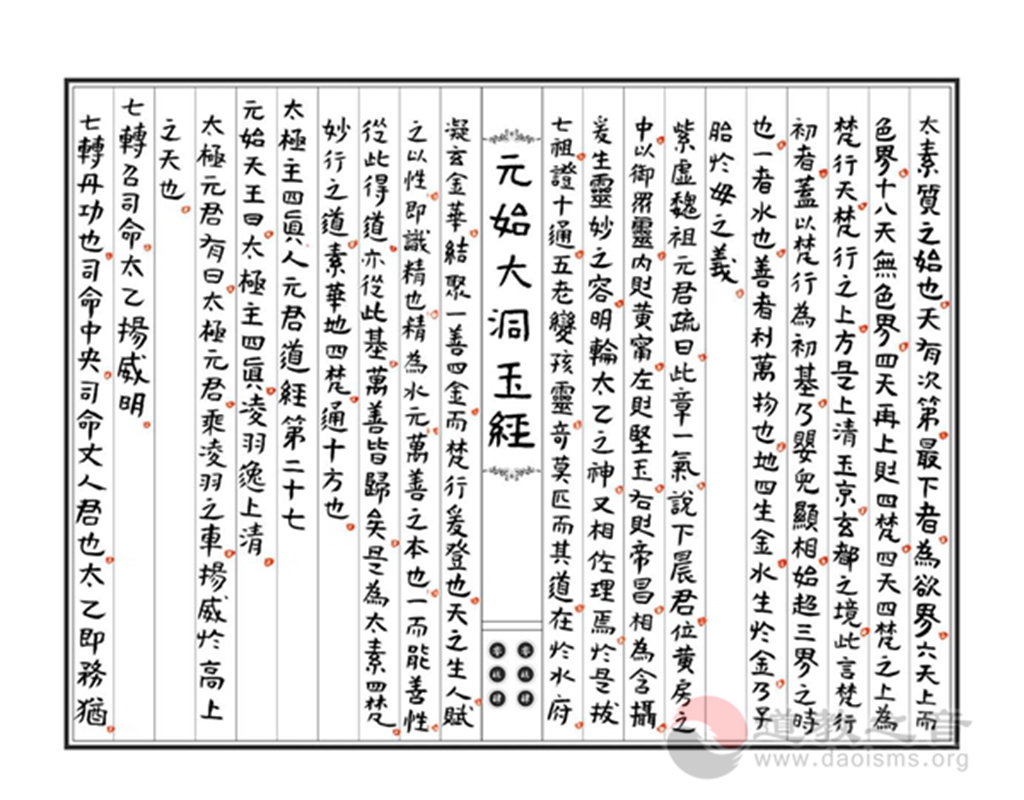 太素質之始也天有次第最下者為欲界六天上而
色界十八天無色界四天再上則四梵四天四梵之上為
梵行天梵行之上方是上清玉京玄都之境此言梵行
初者蓋以梵行為初基乃嬰兒顯相始超三界之時
也一者水也善者利萬物也地四生金水生於金乃子
胎於母之義
紫虛魏祖元君疏曰此章一氣說下晨君位黃房之
中以御眾靈內則黃甯左則堅玉右則帝昌相為含攝
爰生靈妙之容明輪太乙之神又相佐理焉於是拔
七祖證十通五老變孩靈奇莫匹而其道在於水府
元始大洞玉經
凝玄金華結聚一善四金而梵行爰登也天之生人賦
之以性即識精也精為水元萬善之本也一而能善性
從此得道亦從此基萬善皆歸矣是為太素四梵
妙行之道素華地四梵通十方也
太極主四真人元君道經第二十七
元始天王曰太極主四真凌羽逸上清
太極元君有曰太極元君乘凌羽之車揚威於高上
之天也
七轉召司命太乙揚威明
七轉丹功也司命中央司命丈人君也太乙即務猶
道教之音
www.daoisms.org